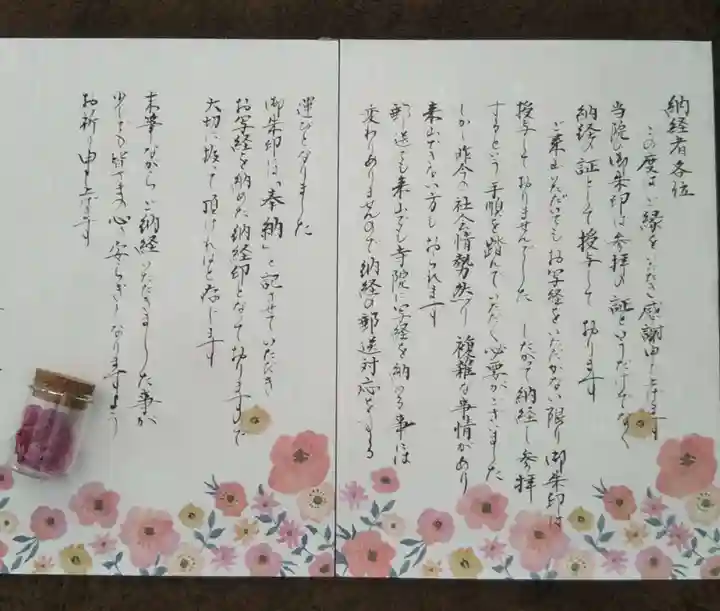 納経者各位
この度はご縁をいただき感謝申し上げます
当院の御朱印は参拝の証というだけでなく
納経の証として授与して居ります
ご来山いただいてもお写経をいただかない限り御朱印は
授与して居りませんでした したがって納経し参拝
するという手順を踏んでいただく必要がございました
しかし昨今の社会情勢然り 複雑な事情があり
来山できない方もおられます
郵送でも来山でも寺院に写経を納める事には
変わりありませんので納経の郵送対応をする
運びとなりました
御朱印は、「奉納」と記させていただき
お写経を納めた納経印となって居りますので
大切に扱って頂ければと存じます
末筆ながらご納経いただきました事が
少しでも皆さまの心の安らぎになりますよう
お祈り申し上げます